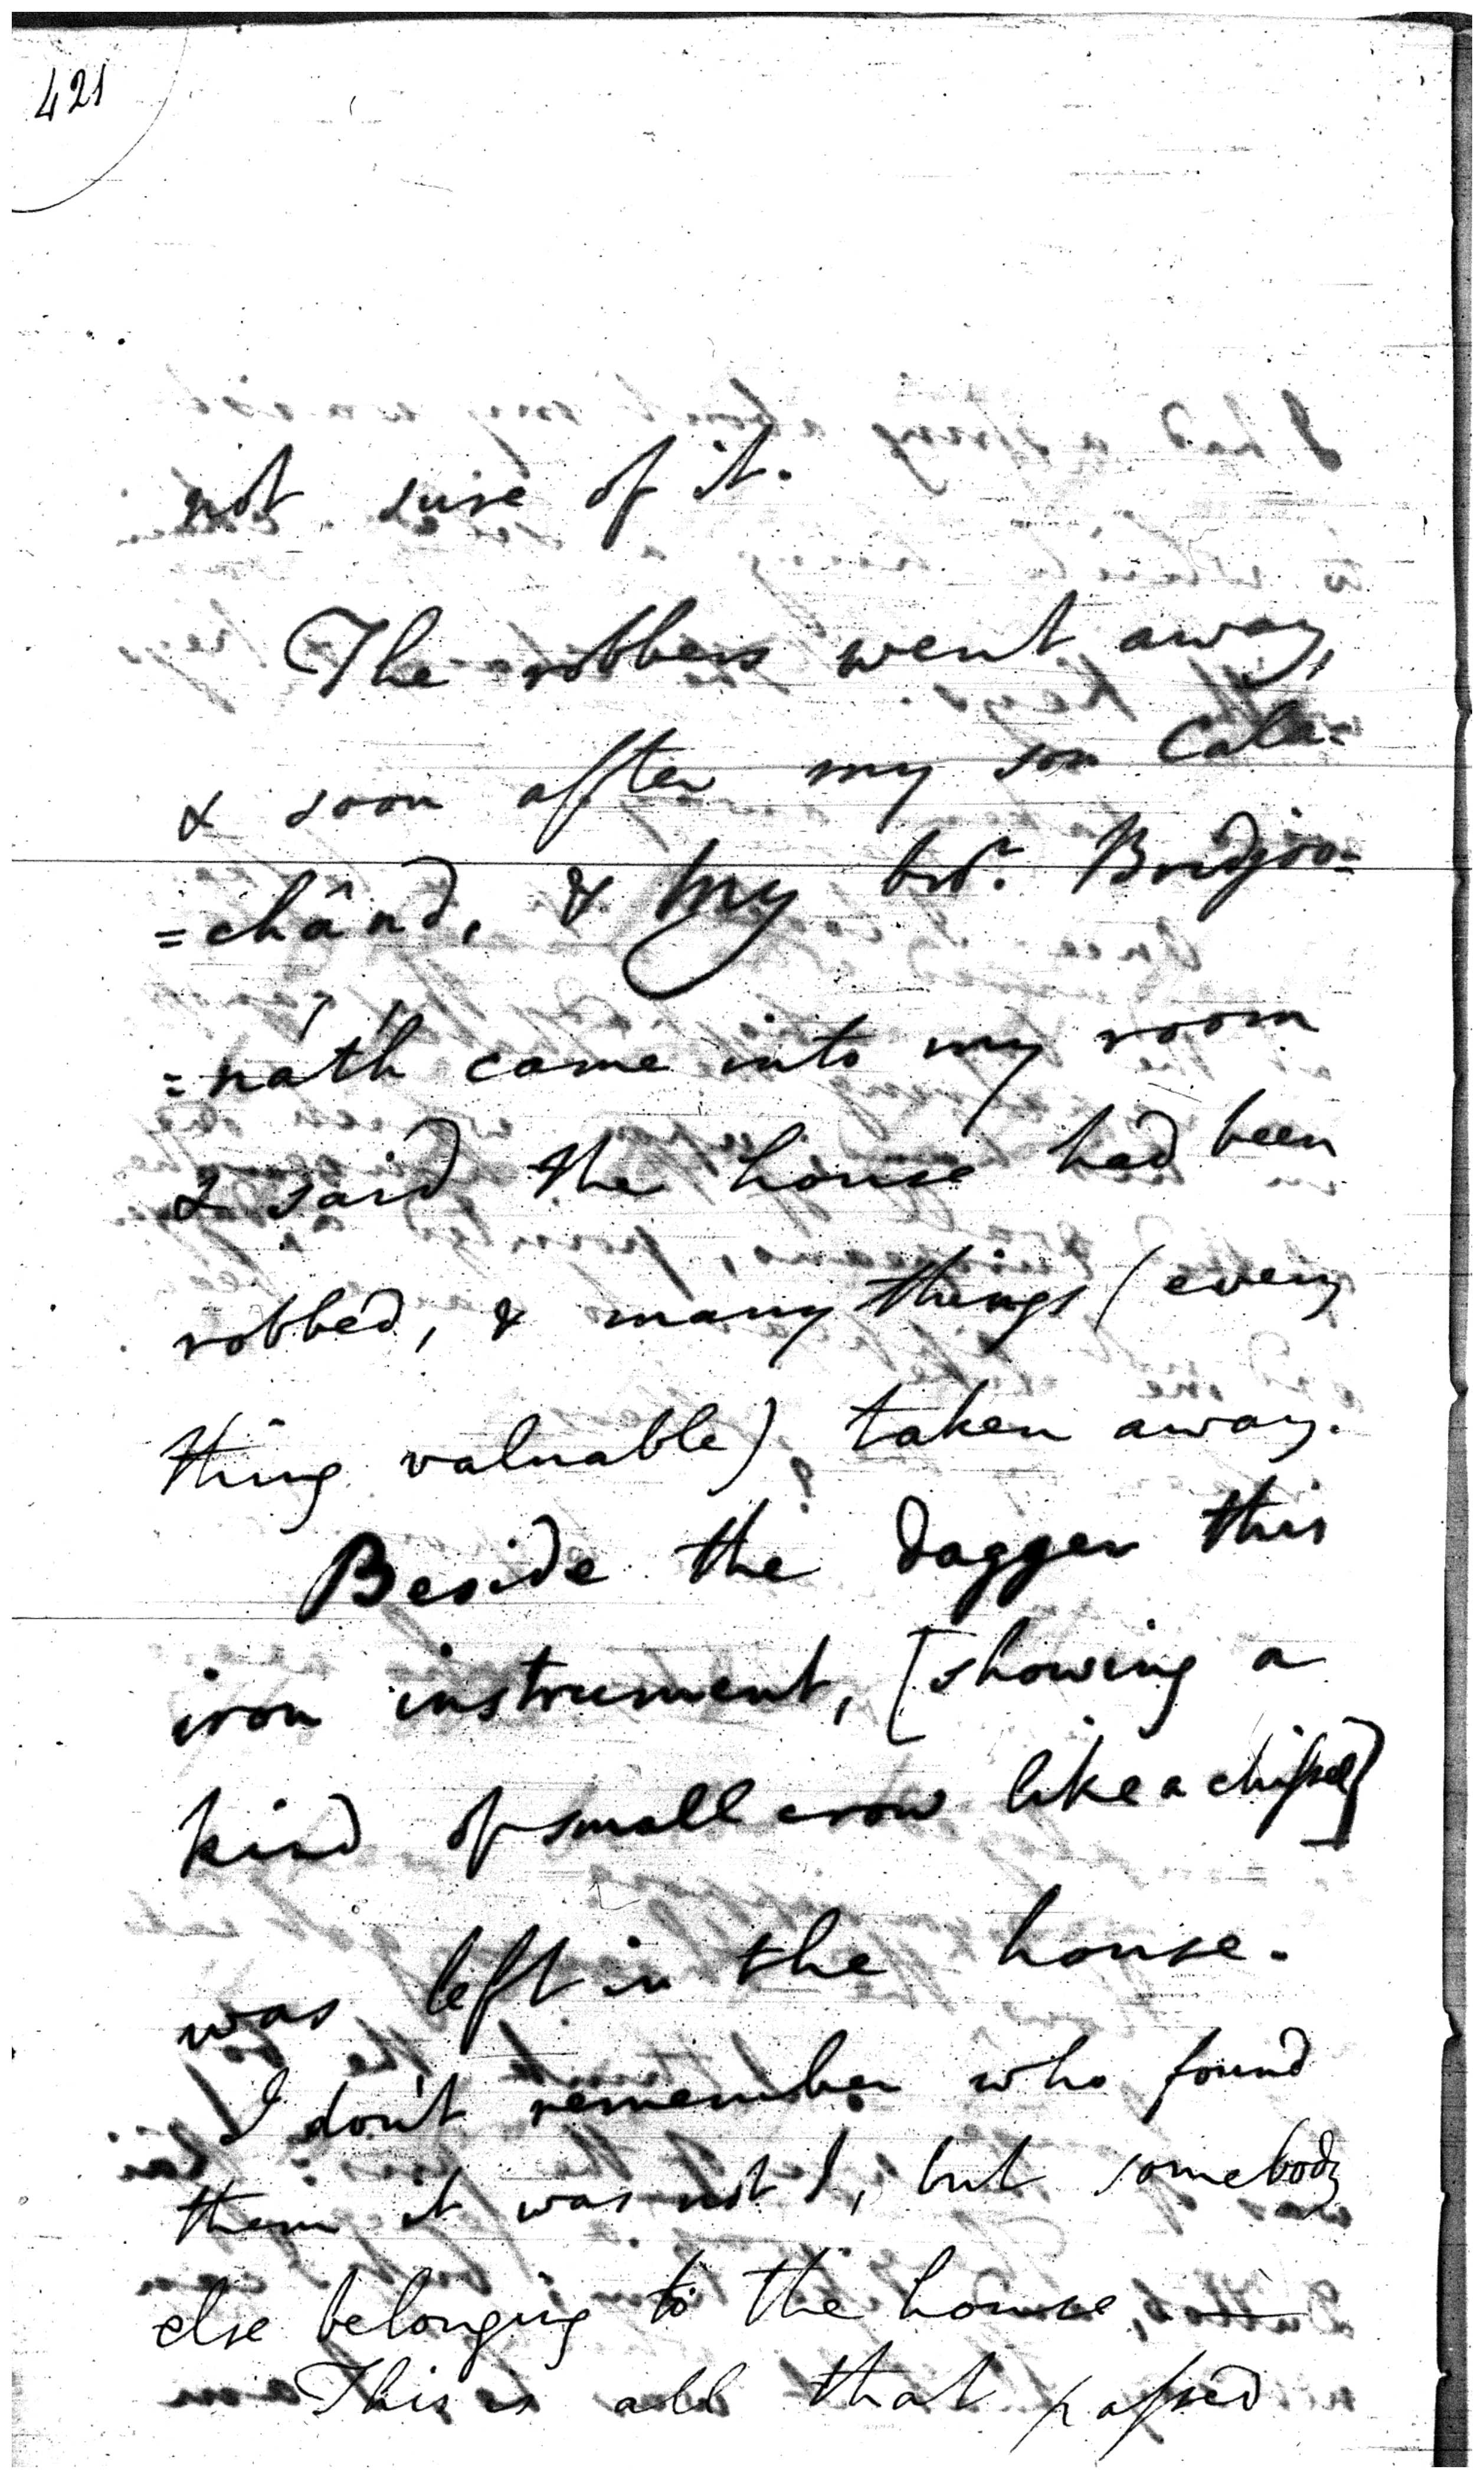 421
not sure of it.
The robbers went away,
& soon after my son Cala=
=chând, & my bror. Bridjoo=
=náth came into my room
& said the house had been
robbed, & many things (every
thing valuable) taken away.
Beside the dagger this
iron instrument, [showing a
kind of small crow like a chissel]
was left in the house.
I don't remember who found
them it was not I, but somebody
else belonging to the house. —
This is all that passed